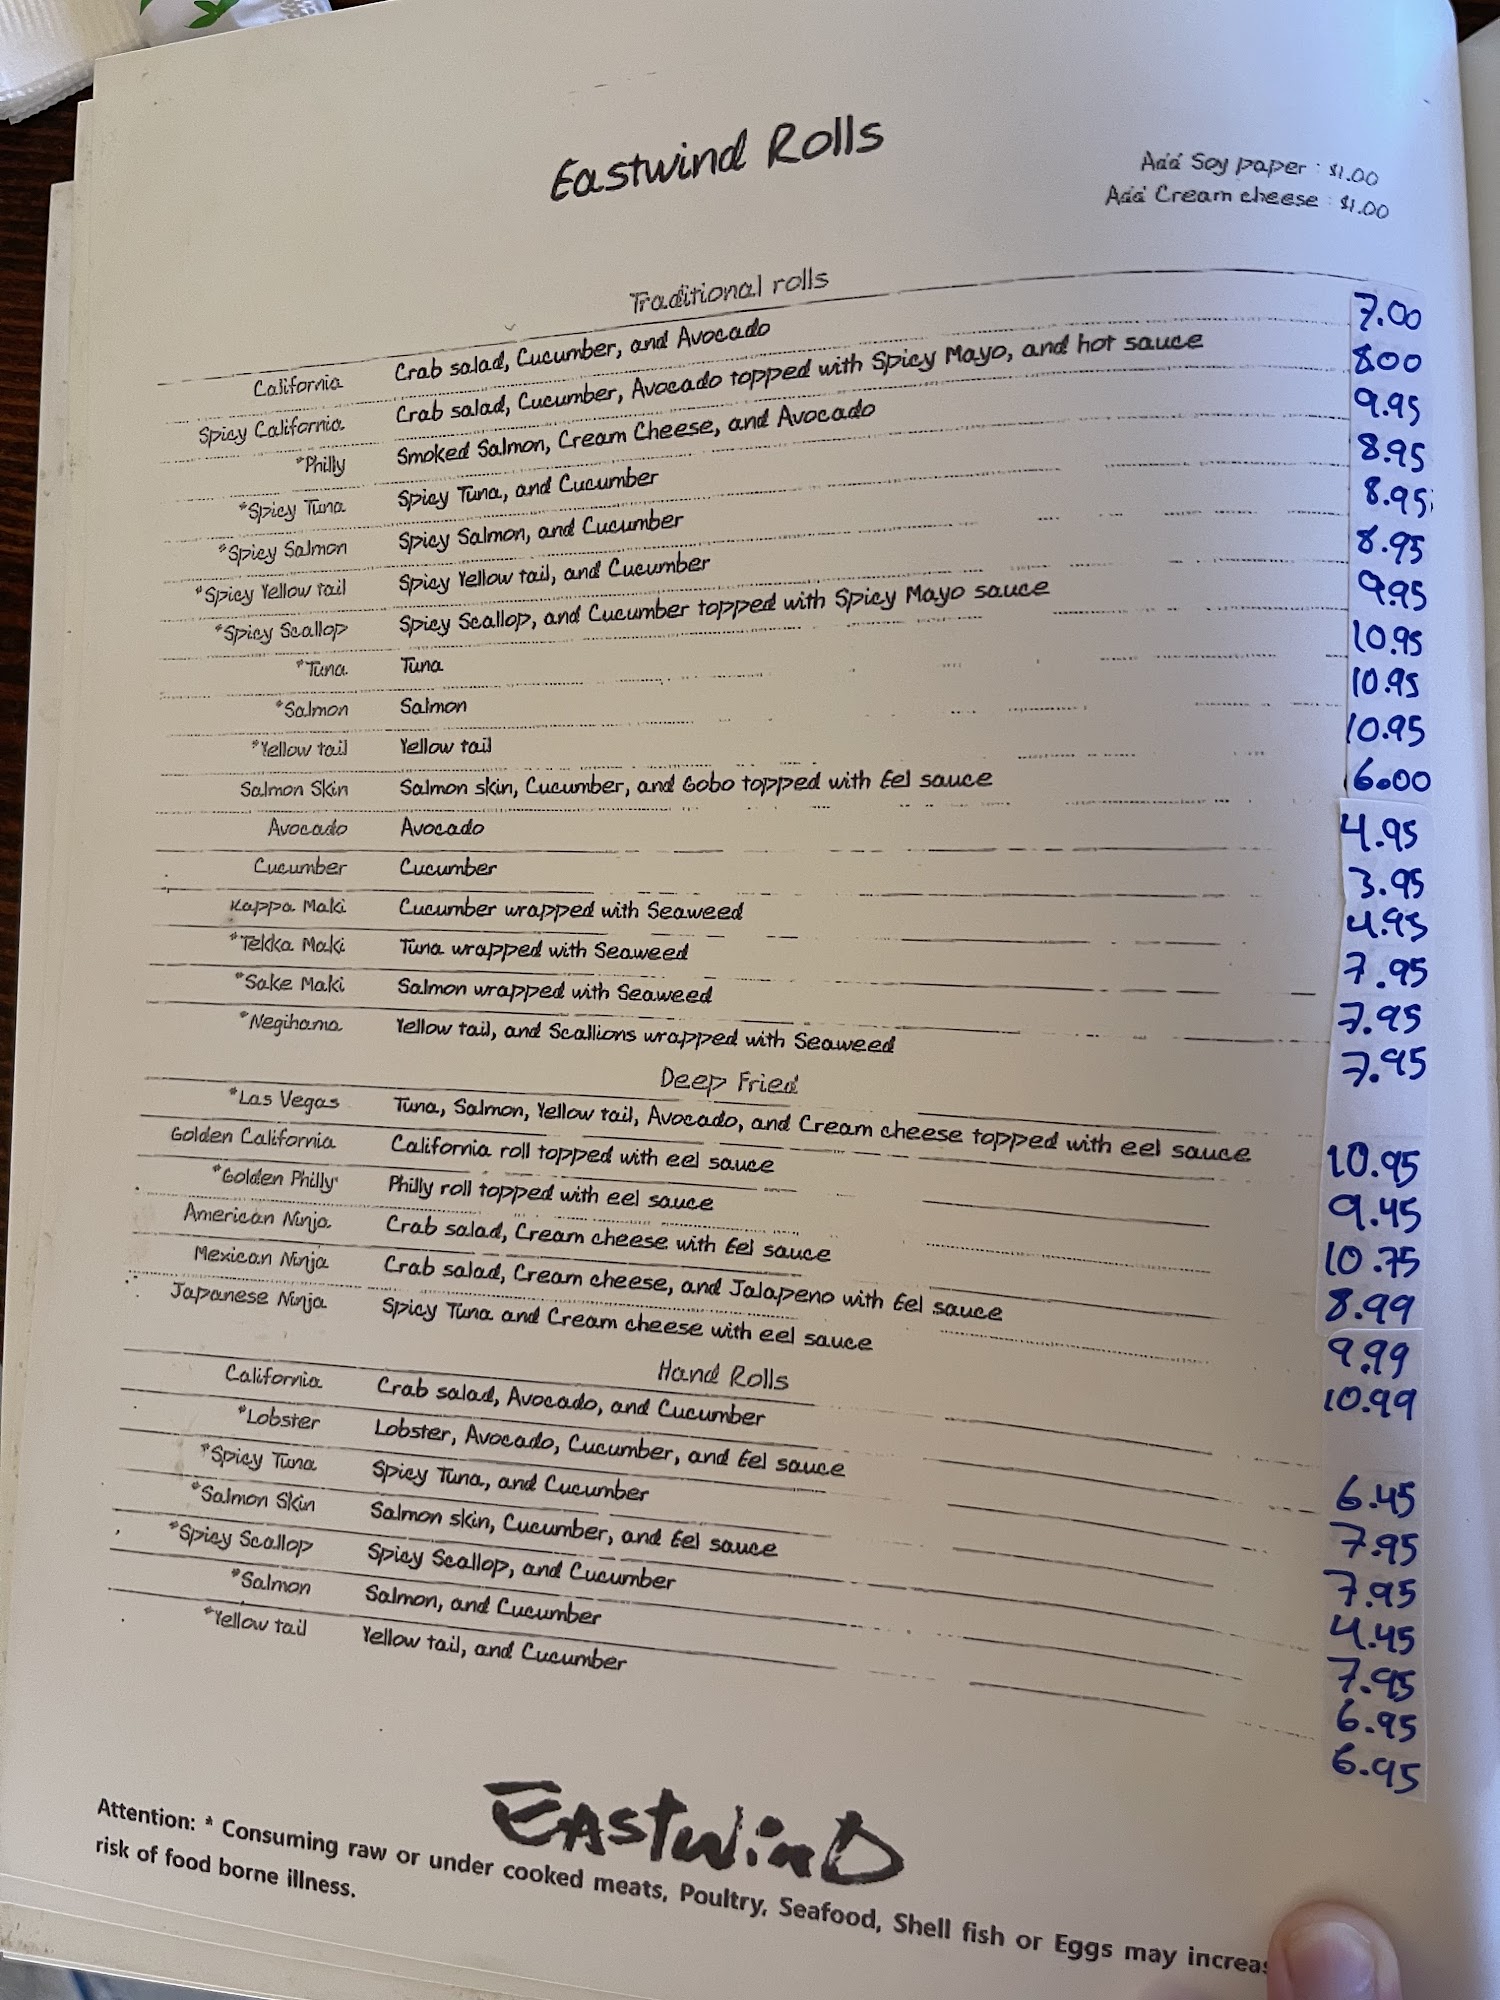 Eastwind Rolls
Add Soy paper : $1.00
Add Cream cheese : $1.00
Traditional rolls
California Crab salad, Cucumber, and Avocado 7.00
Spicy California Crab salad, Cucumber, Avocado topped with Spicy Mayo, and hot sauce 8.00
*Philly Smoked Salmon, Cream Cheese, and Avocado 9.95
*Spicy Tuna Spicy Tuna, and Cucumber 8.95
*Spicy Salmon Spicy Salmon, and Cucumber 8.95
*Spicy Yellow tail Spicy Yellow tail, and Cucumber 8.95
*Spicy Scallop Spicy Scallop, and Cucumber topped with Spicy Mayo sauce 9.95
*Tuna Tuna 10.95
*Salmon Salmon 10.95
*Yellow tail Yellow tail 10.95
Salmon Skin Salmon skin, Cucumber, and Gobo topped with Eel sauce 6.00
Avocado Avocado 4.95
Cucumber Cucumber 3.95
Kappa Maki Cucumber wrapped with Seaweed 4.95
*Tekka Maki Tuna wrapped with Seaweed 7.95
*Sake Maki Salmon wrapped with Seaweed 7.95
*Negihama Yellow tail, and Scallions wrapped with Seaweed 7.95
Deep Fried
*Las Vegas Tuna, Salmon, Yellow tail, Avocado, and Cream cheese topped with eel sauce 10.95
Golden California California roll topped with eel sauce 9.45
*Golden Philly Philly roll topped with eel sauce 10.75
American Ninja Crab salad, Cream cheese with Eel sauce 8.99
Mexican Ninja Crab salad, Cream cheese, and Jalapeno with Eel sauce 9.99
Japanese Ninja Spicy Tuna and Cream cheese with eel sauce 10.99
Hand Rolls
California Crab salad, Avocado, and Cucumber 6.45
*Lobster Lobster, Avocado, Cucumber, and Eel sauce 7.95
*Spicy Tuna Spicy Tuna, and Cucumber 7.95
*Salmon Skin Salmon skin, Cucumber, and Eel sauce 4.45
*Spicy Scallop Spicy Scallop, and Cucumber 7.95
*Salmon Salmon, and Cucumber 6.95
*Yellow tail Yellow tail, and Cucumber 6.95
EASTWinD
Attention: * Consuming raw or under cooked meats, Poultry, Seafood, Shell fish or Eggs may increas
risk of food borne illness.